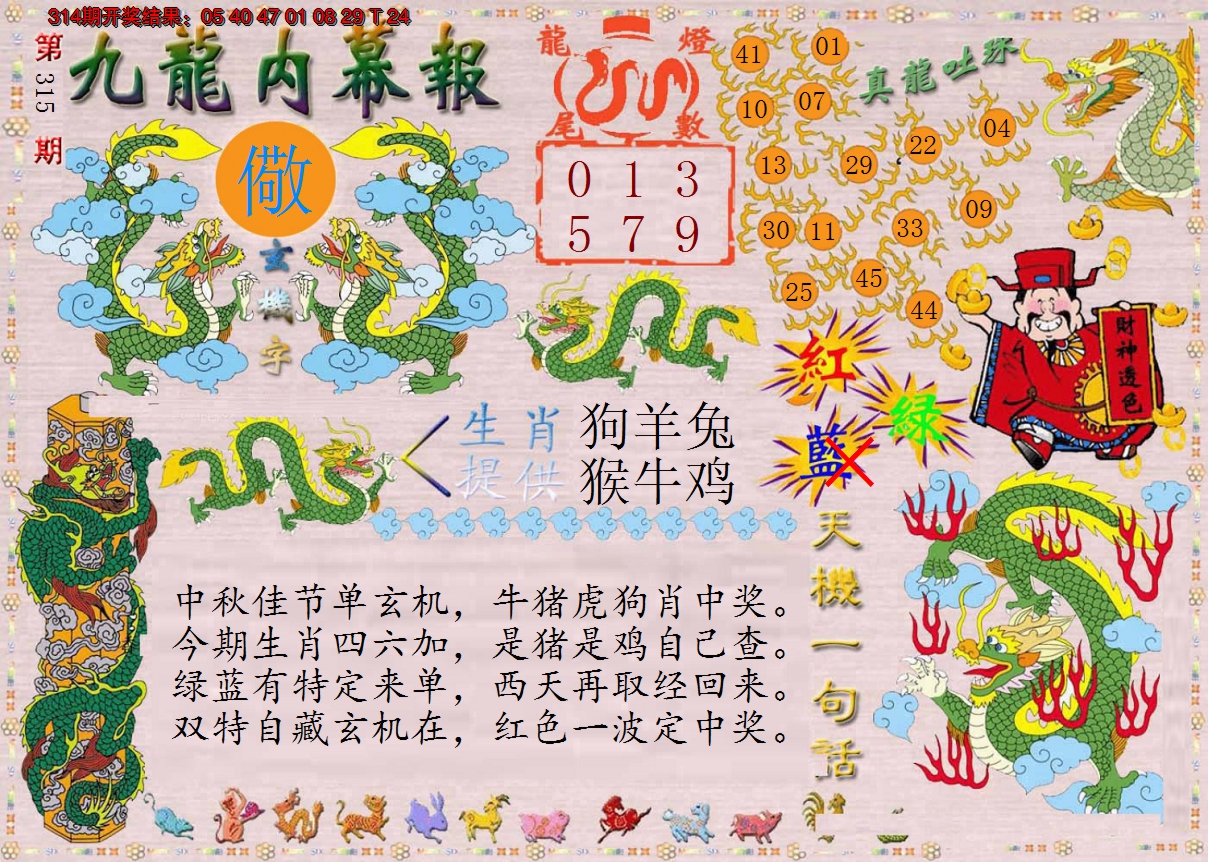 314期开奖结果：05 40 47 01 08 29 T 24
第315期
九龍内幕報
儆
玄機字
龍燈
尾數
0 1 3
5 7 9
真龍吐珠
41 01
10 07
13 29 22 04
30 11 33 09
25 45 44
財神透色
紅
綠
藍
生肖提供
狗羊兔
猴牛鸡
天機一句话
中秋佳节单玄机，牛猪虎狗肖中奖。
今期生肖四六加，是猪是鸡自己查。
绿蓝有特定来单，西天再取经回来。
双特自藏玄机在，红色一波定中奖。